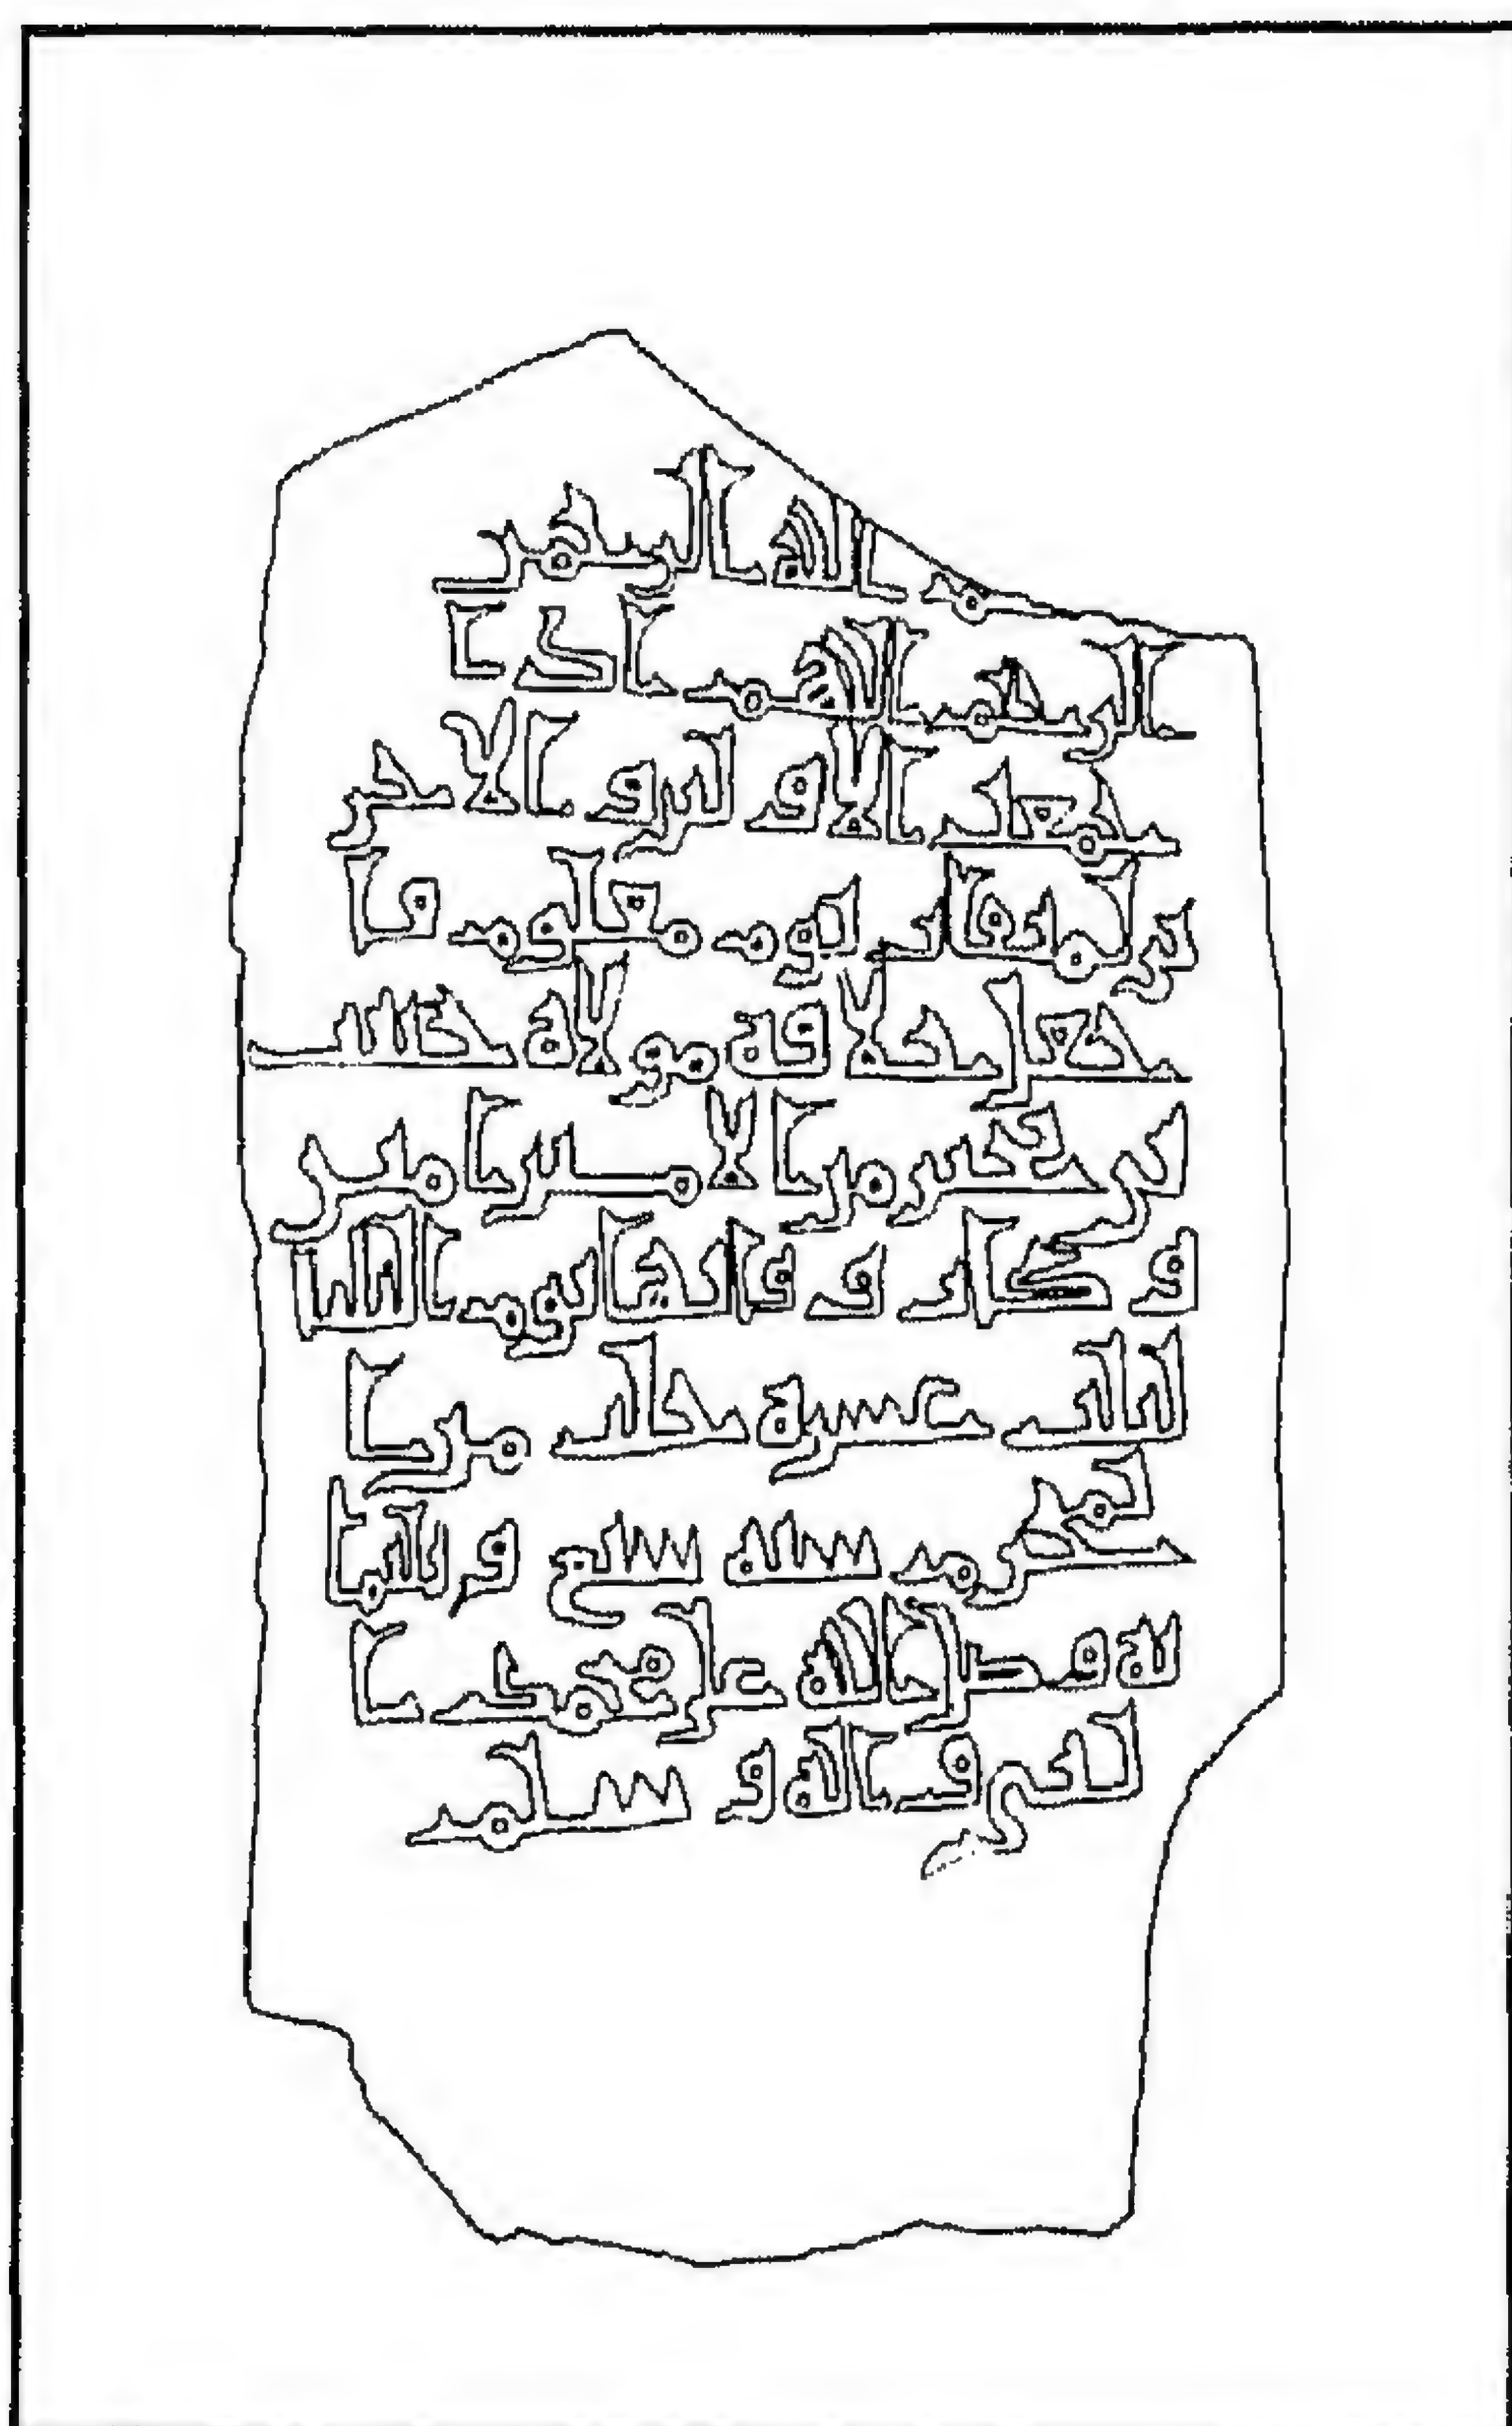 م الله الرحمن
الرحيم اللهم اذا
جمعت الاولين والاخر
ين لميقات يوم معلوم فا
جعل خلافة مولاة
بن من الامنين امين
وكان وفاتها يوم الثلثا
لثلث عشرة خلت من ا
لمحرم سنة سبع وثلثما
ئة وصلى الله على محمد ا
لنبي واله وسلم